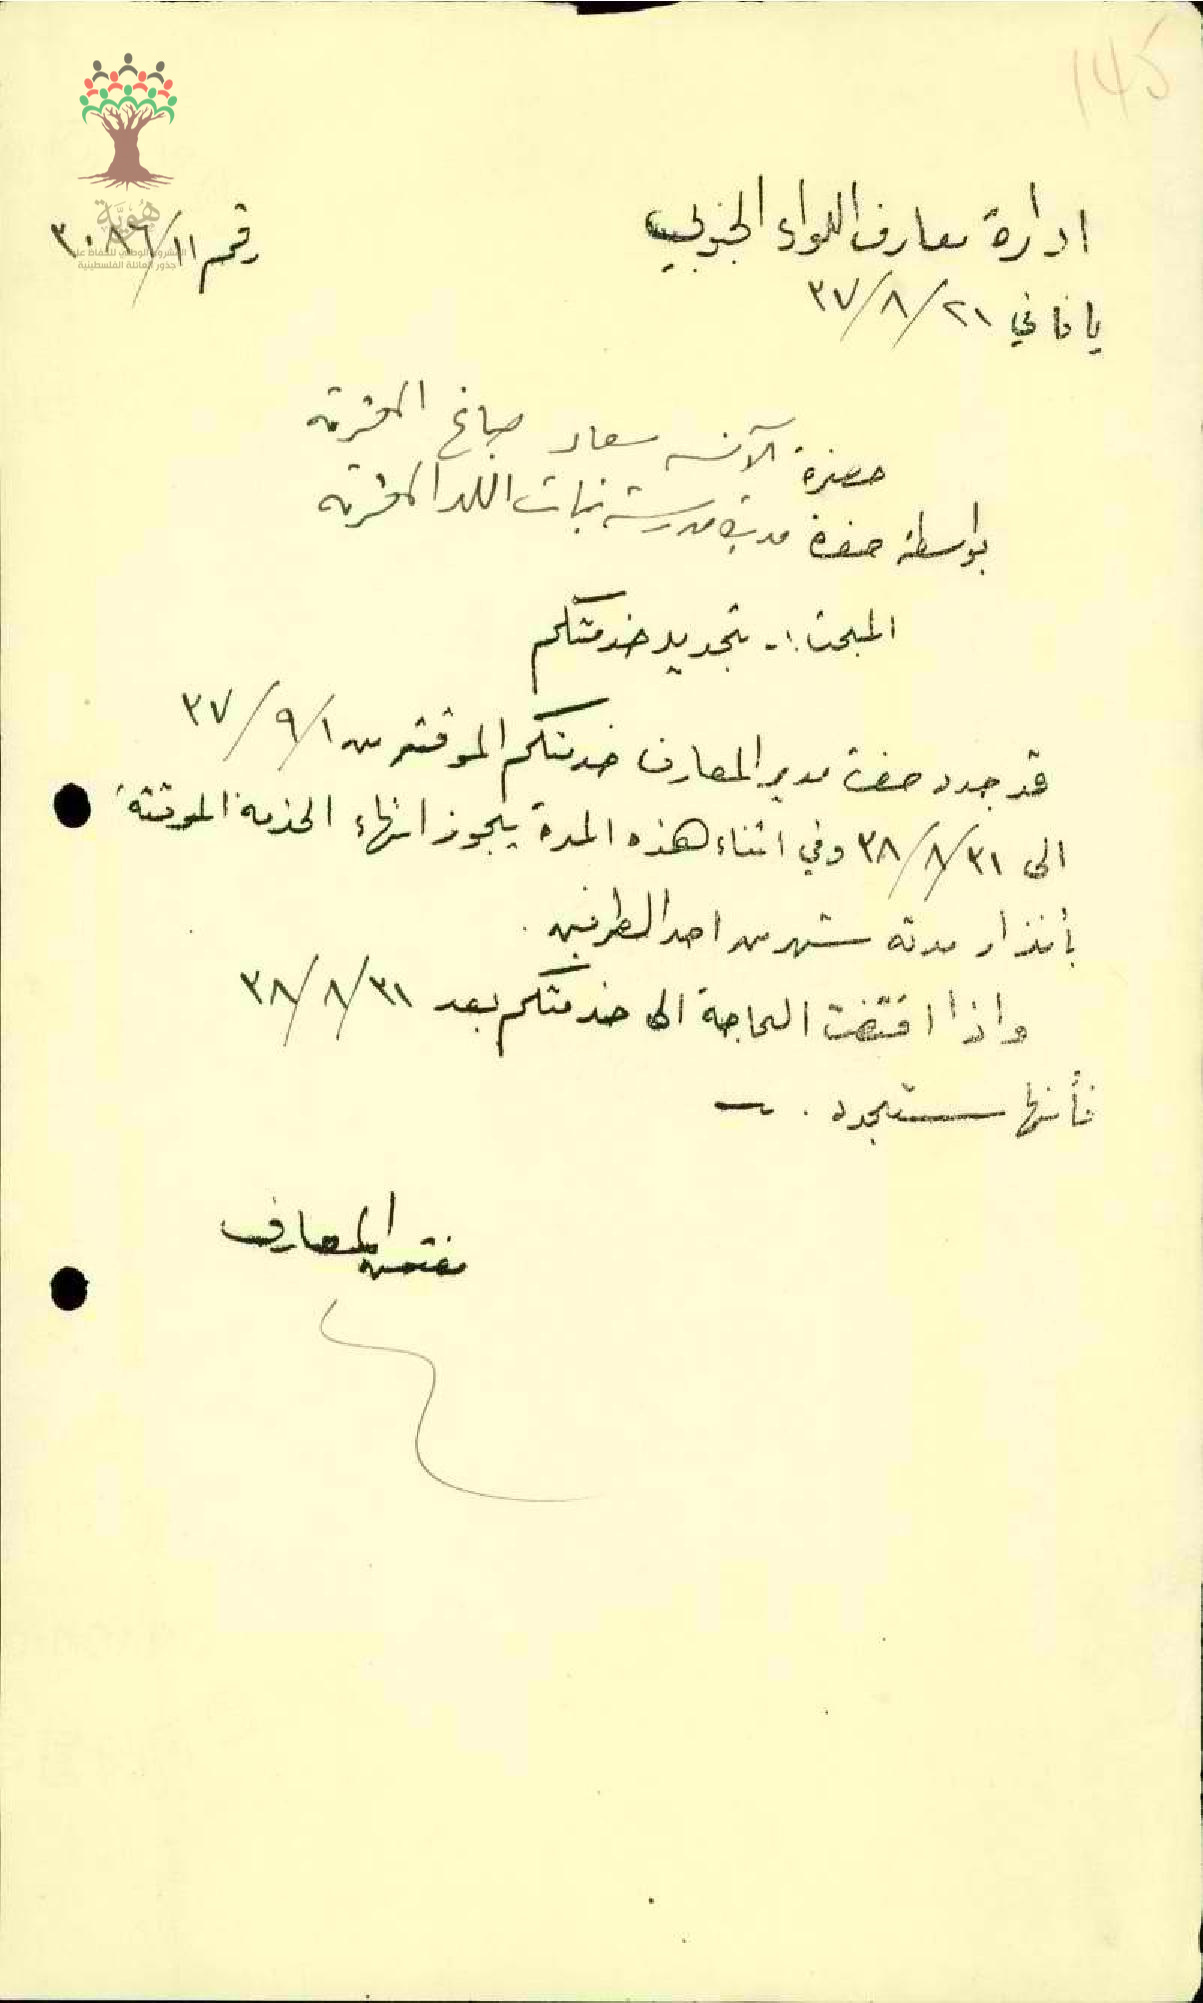 145
ادارة معارف اللواء الجنوبي
رقم ١١/٣٠٨٦
يافا في ٢١/٨/٣٧
هُوِيَّة
المشروع الوطني للحفاظ على
جذور العائلة الفلسطينية
حضرة الآنسه سعاد صباغ المحترمه
بواسطة حضرة مديرة مدرسة بنات اللد المحترمه
المبحث :- تجديد خدمتكم
قد جدد حضرة مدير المعارف خدمتكم الموقته من ١/٩/٣٧
الى ٣١/٨/٣٨ وفي اثناء هذه المدة يجوز انهاء الخدمة الموقتة
بأنذار مدته شهر من احد الطرفين .
واذا اقتضت الحاجة الى خدمتكم بعد ٣١/٨/٣٨
فأنها ستجدد .
مفتش المعارف